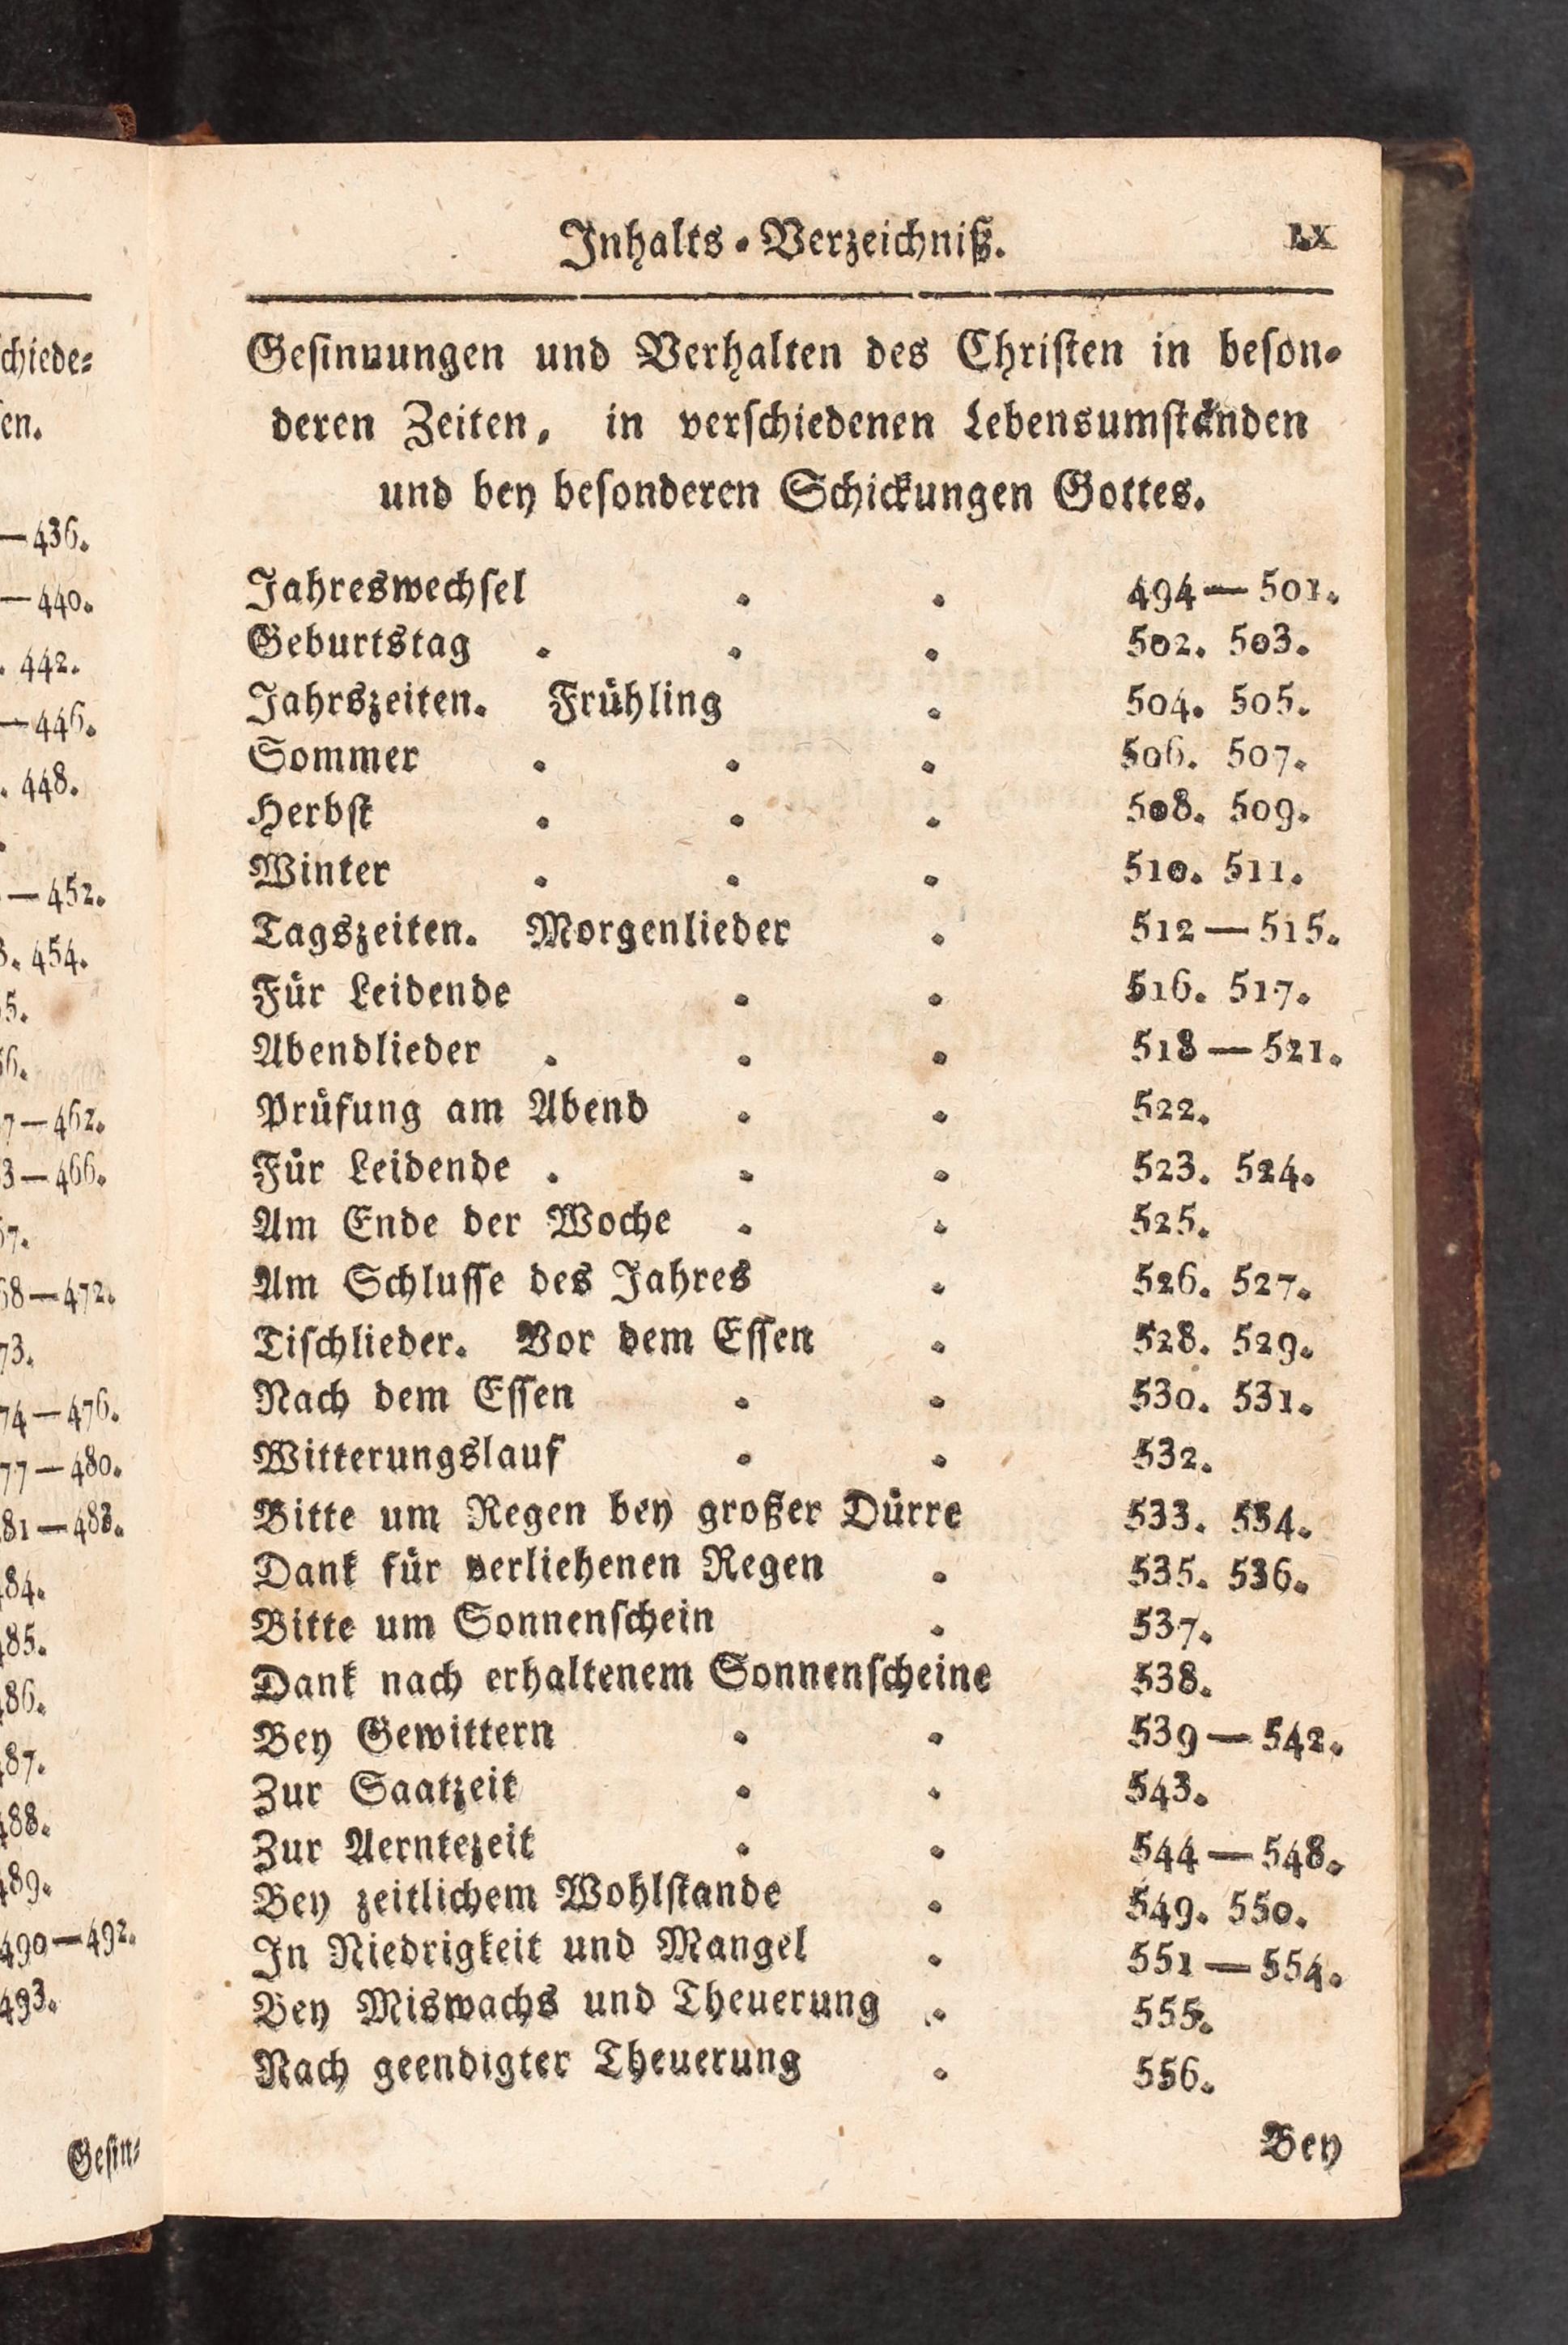 chiede-
en.
—436.
—440.
. 442.
—446.
. 448.
—452.
. 454.
5.
6.
7—462.
3—466.
7.
68—472.
73.
74—476.
77—480.
81—483.
484.
485.
486.
487.
488.
489.
490—492.
493.
Gesin-
Inhalts-Verzeichniß. LX
Gesinnungen und Verhalten des Christen in beson-
deren Zeiten, in verschiedenen Lebensumständen
und bey besonderen Schickungen Gottes.
Jahreswechsel . . 494—501.
Geburtstag . . . 502. 503.
Jahrszeiten. Frühling . 504. 505.
Sommer . . . 506. 507.
Herbst . . . 508. 509.
Winter . . . 510. 511.
Tagszeiten. Morgenlieder . 512—515.
Für Leidende . . 516. 517.
Abendlieder . . . 518—521.
Prüfung am Abend . . 522.
Für Leidende . . . 523. 524.
Am Ende der Woche . . 525.
Am Schlusse des Jahres . 526. 527.
Tischlieder. Vor dem Essen . 528. 529.
Nach dem Essen . . 530. 531.
Witterungslauf . . 532.
Bitte um Regen bey großer Dürre 533. 534.
Dank für verliehenen Regen . 535. 536.
Bitte um Sonnenschein . 537.
Dank nach erhaltenem Sonnenscheine 538.
Bey Gewittern . . 539—542.
Zur Saatzeit . . 543.
Zur Aerntezeit . . 544—548.
Bey zeitlichem Wohlstande . 549. 550.
In Niedrigkeit und Mangel . 551—554.
Bey Miswachs und Theuerung . 555.
Nach geendigter Theuerung . 556.
Bey